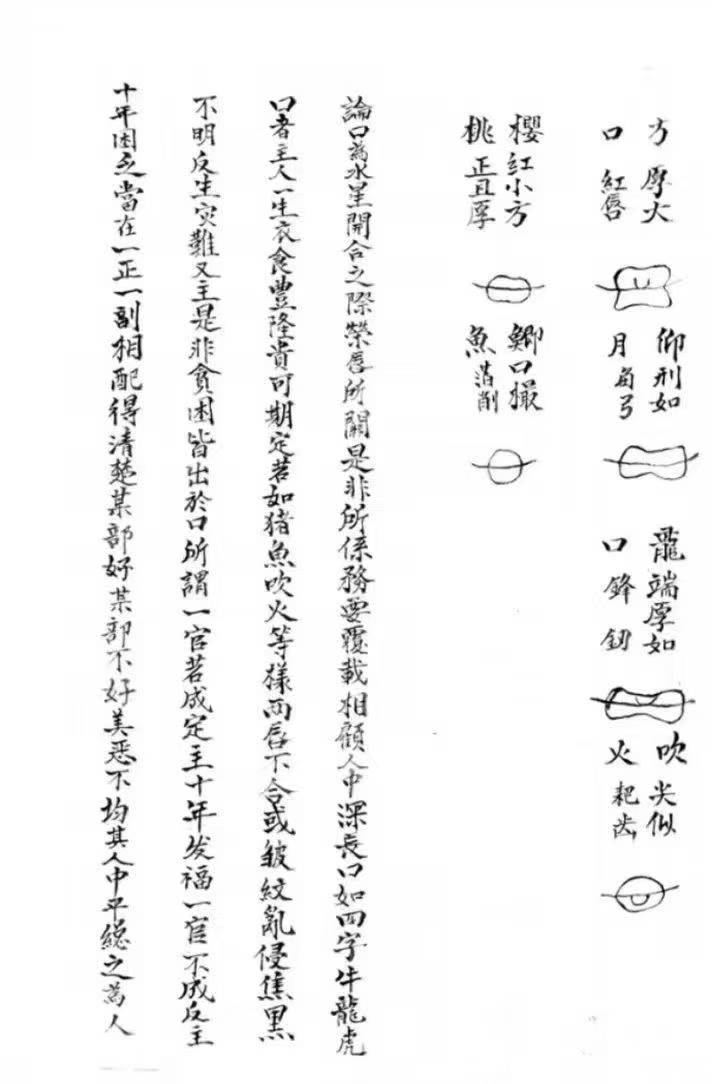 方厚大
口紅唇
仰刑如
月角弓
龍端厚如
口鋒釰
吹尖似
火耙齿
櫻紅小方
桃正且厚
鯽口撮
魚萡削
論口為水星開合之際榮唇所關是非所係務要覆載相顧人中深長口如四字牛龍虎
口者主人一生衣食豐隆貴可期定若如猪魚吹火等樣両唇不合或皱紋亂侵焦黑
不明反生灾難又主是非貧困皆出於口所謂一官若成定主十年发福一官不成反主
十年困乏當在一正一副相配得清楚某部好某部不好美恶不均其人中平総之為人